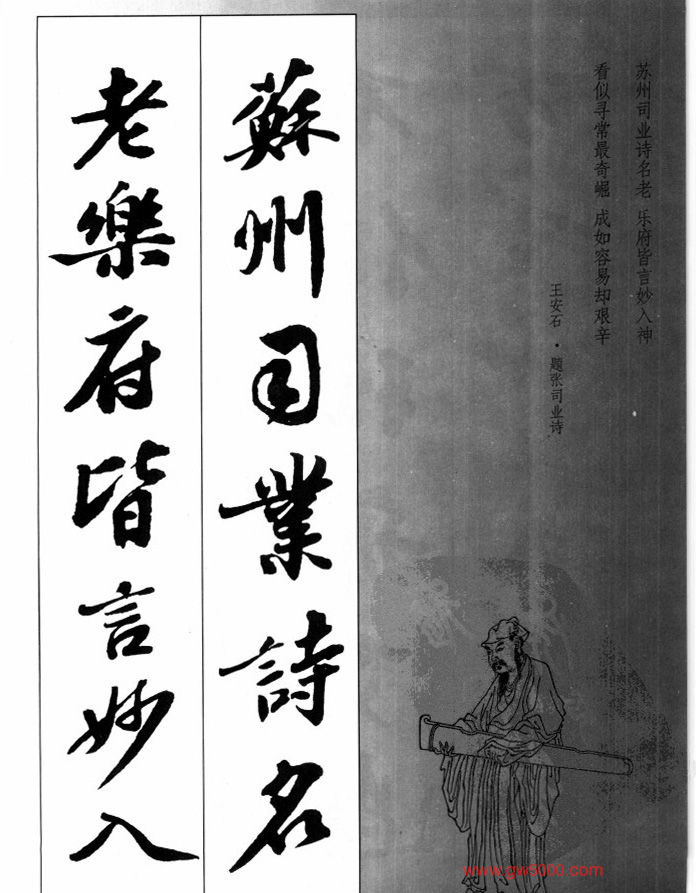 苏州司业诗名老 乐府皆言妙入神
看似寻常最奇崛 成如容易却艰辛
王安石·题张司业诗
蘇州司業詩名
老樂府皆言妙入
www.gw5000.com